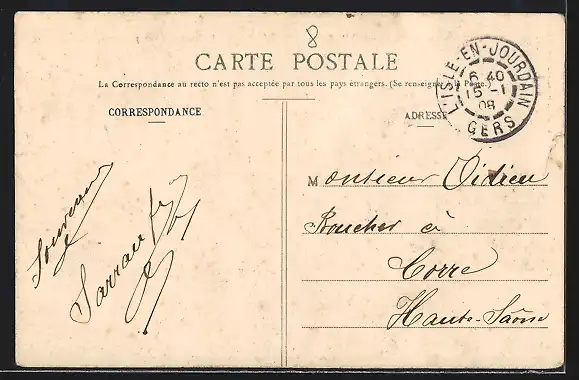 8
CARTE POSTALE
La Correspondance au recto n'est pas acceptée par tous les pays étrangers. (Se renseigner à la Poste.)
CORRESPONDANCE
ADRESSE
L'ISLE-EN-JOURDAIN
6 40
15 -1
08
GERS
Monsieur Didieu
Boucher à
Corre
Haute-Saône
Souvenir
Sarrau